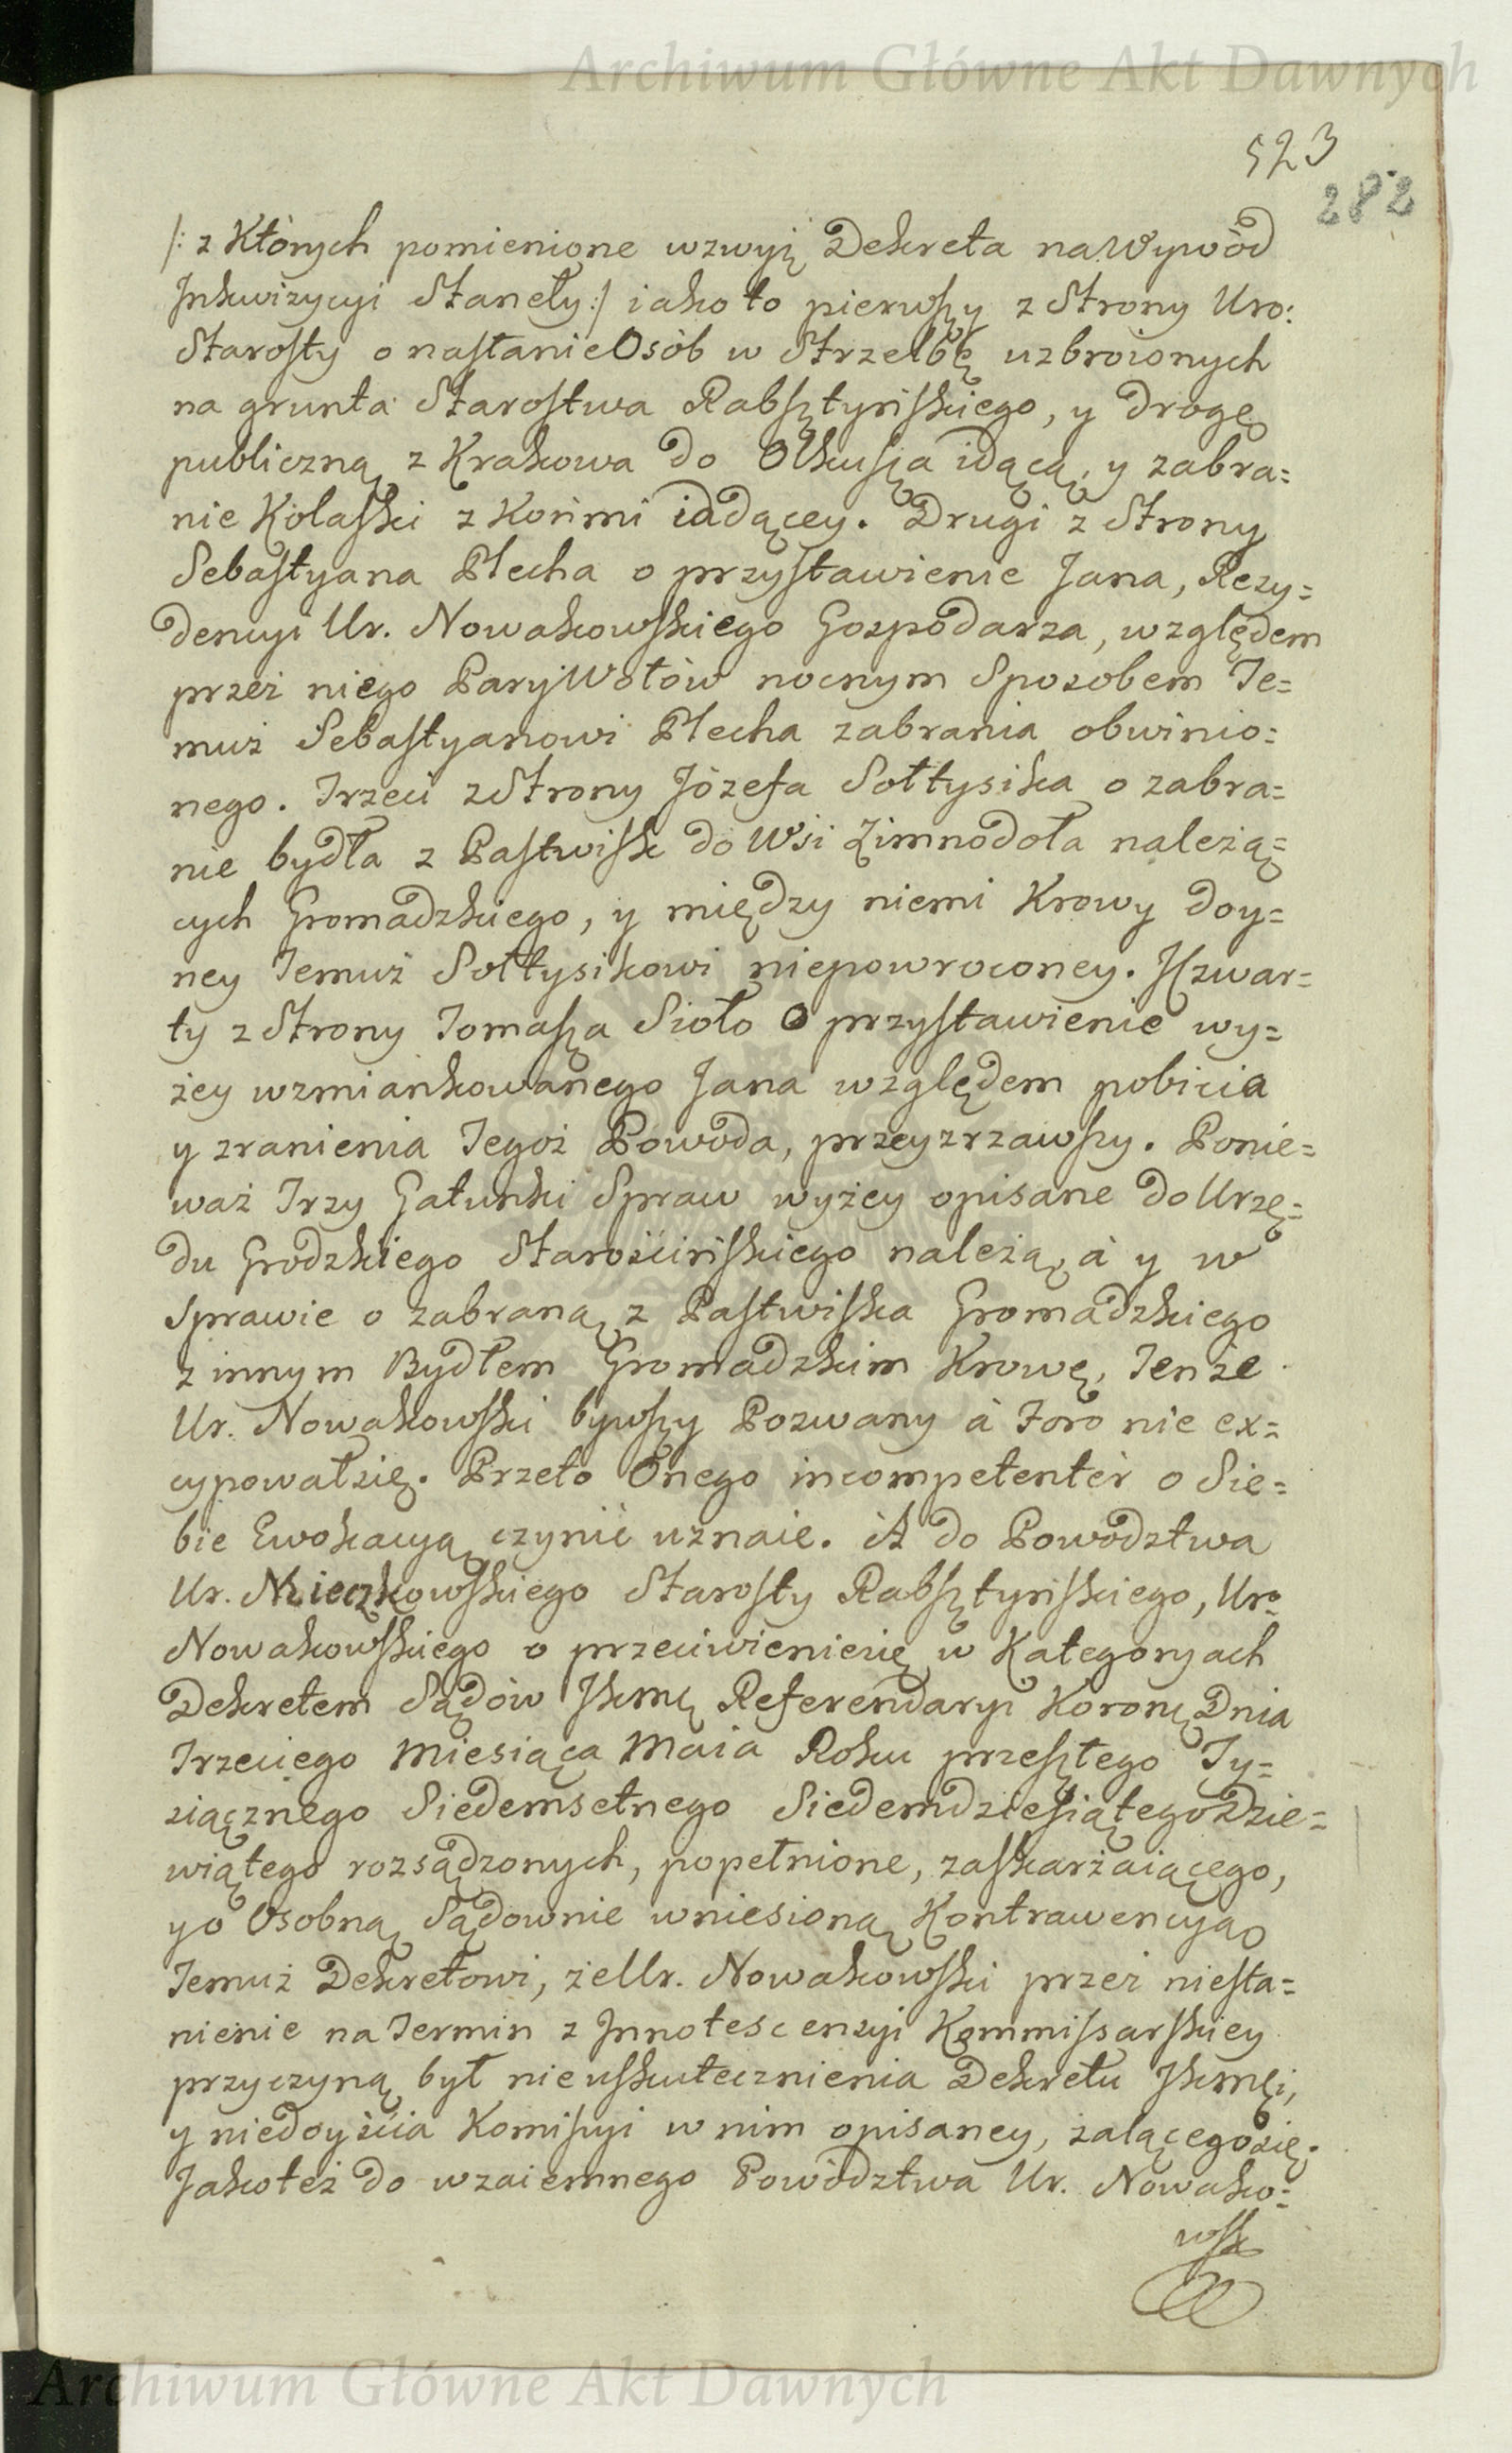 Archiwum Główne Akt Dawnych
523
282
/: z Których pomienione wzwyż Dekreta na Wywód
Jnkwizycyi Stanęły :/ iako to pierwszy z Strony Uro:
Starosty o nasłanie Osób w Strzelbę uzbroionych
na grunta Starostwa Rabsztyńskiego, y drogę
publiczną z Krakowa do Olkusza idącą, y zabra=
nie Kolaski z Końmi iadącey. Drugi z Strony
Sebastyana Plecha o przystawienie Jana, Rezy=
dencyi Ur. Nowakowskiego Gospodarza, względem
przez niego Pary Wołów nocnym Sposobem Te=
muż Sebastyanowi Plecha zabrania obwinio=
nego. Trzeci z Strony Józefa Sołtysika o zabra=
nie bydła z Pastwisk do Wsi Zimnodoła należą=
cych Gromadzkiego, y między niemi Krowy doy=
ney Temuż Sołtysikowi niepowroconey. Czwar=
ty z Strony Tomasza Sioło o przystawienie wy=
żey wzmiankowanego Jana względem pobicia
y zranienia Tegoż Powoda, przeyzrzawszy. Ponie=
waż Trzy Gatunki Spraw wyżey opisane do Urzę=
du Grodzkiego Starościńskiego należą, à y w
Sprawie o zabraną z Pastwiska Gromadzkiego
z innym Bydłem Gromadzkim Krowę, Tenże
Ur. Nowakowski bywszy Pozwany à Foro nie ex=
cypował się. Przeto Onego incompetenter o Sie=
bie Ewokacyą czynić uznaie. A do Powodztwa
Ur. Mieczkowskiego Starosty Rabsztyńskiego, Uro
Nowakowskiego o przeciwienie się w Kategoryach
Dekretem Sądów Jkmę Referendaryi Koronę Dnia
Trzeciego Miesiąca Maia Roku przeszłego Ty=
siącznego Siedemsetnego Siedemdziesiątego Dzie=
wiątego rozsądzonych, popełnione, zaskarżaiącego,
y o Osobną Sądownie wniesioną Kontrawencyą
Temuż Dekretowi, że Ur. Nowakowski przez niesta=
nienie na Termin z Jnnotescencyi Kommissarskiey
przyczyną był nieuskutecznienia Dekretu Jkmęi,
y niedoyścia Komissyi w nim opisaney, żalącego się.
Jakoteż do wzaiemnego Powództwa Ur. Nowako=
wsk
Archiwum Główne Akt Dawnych